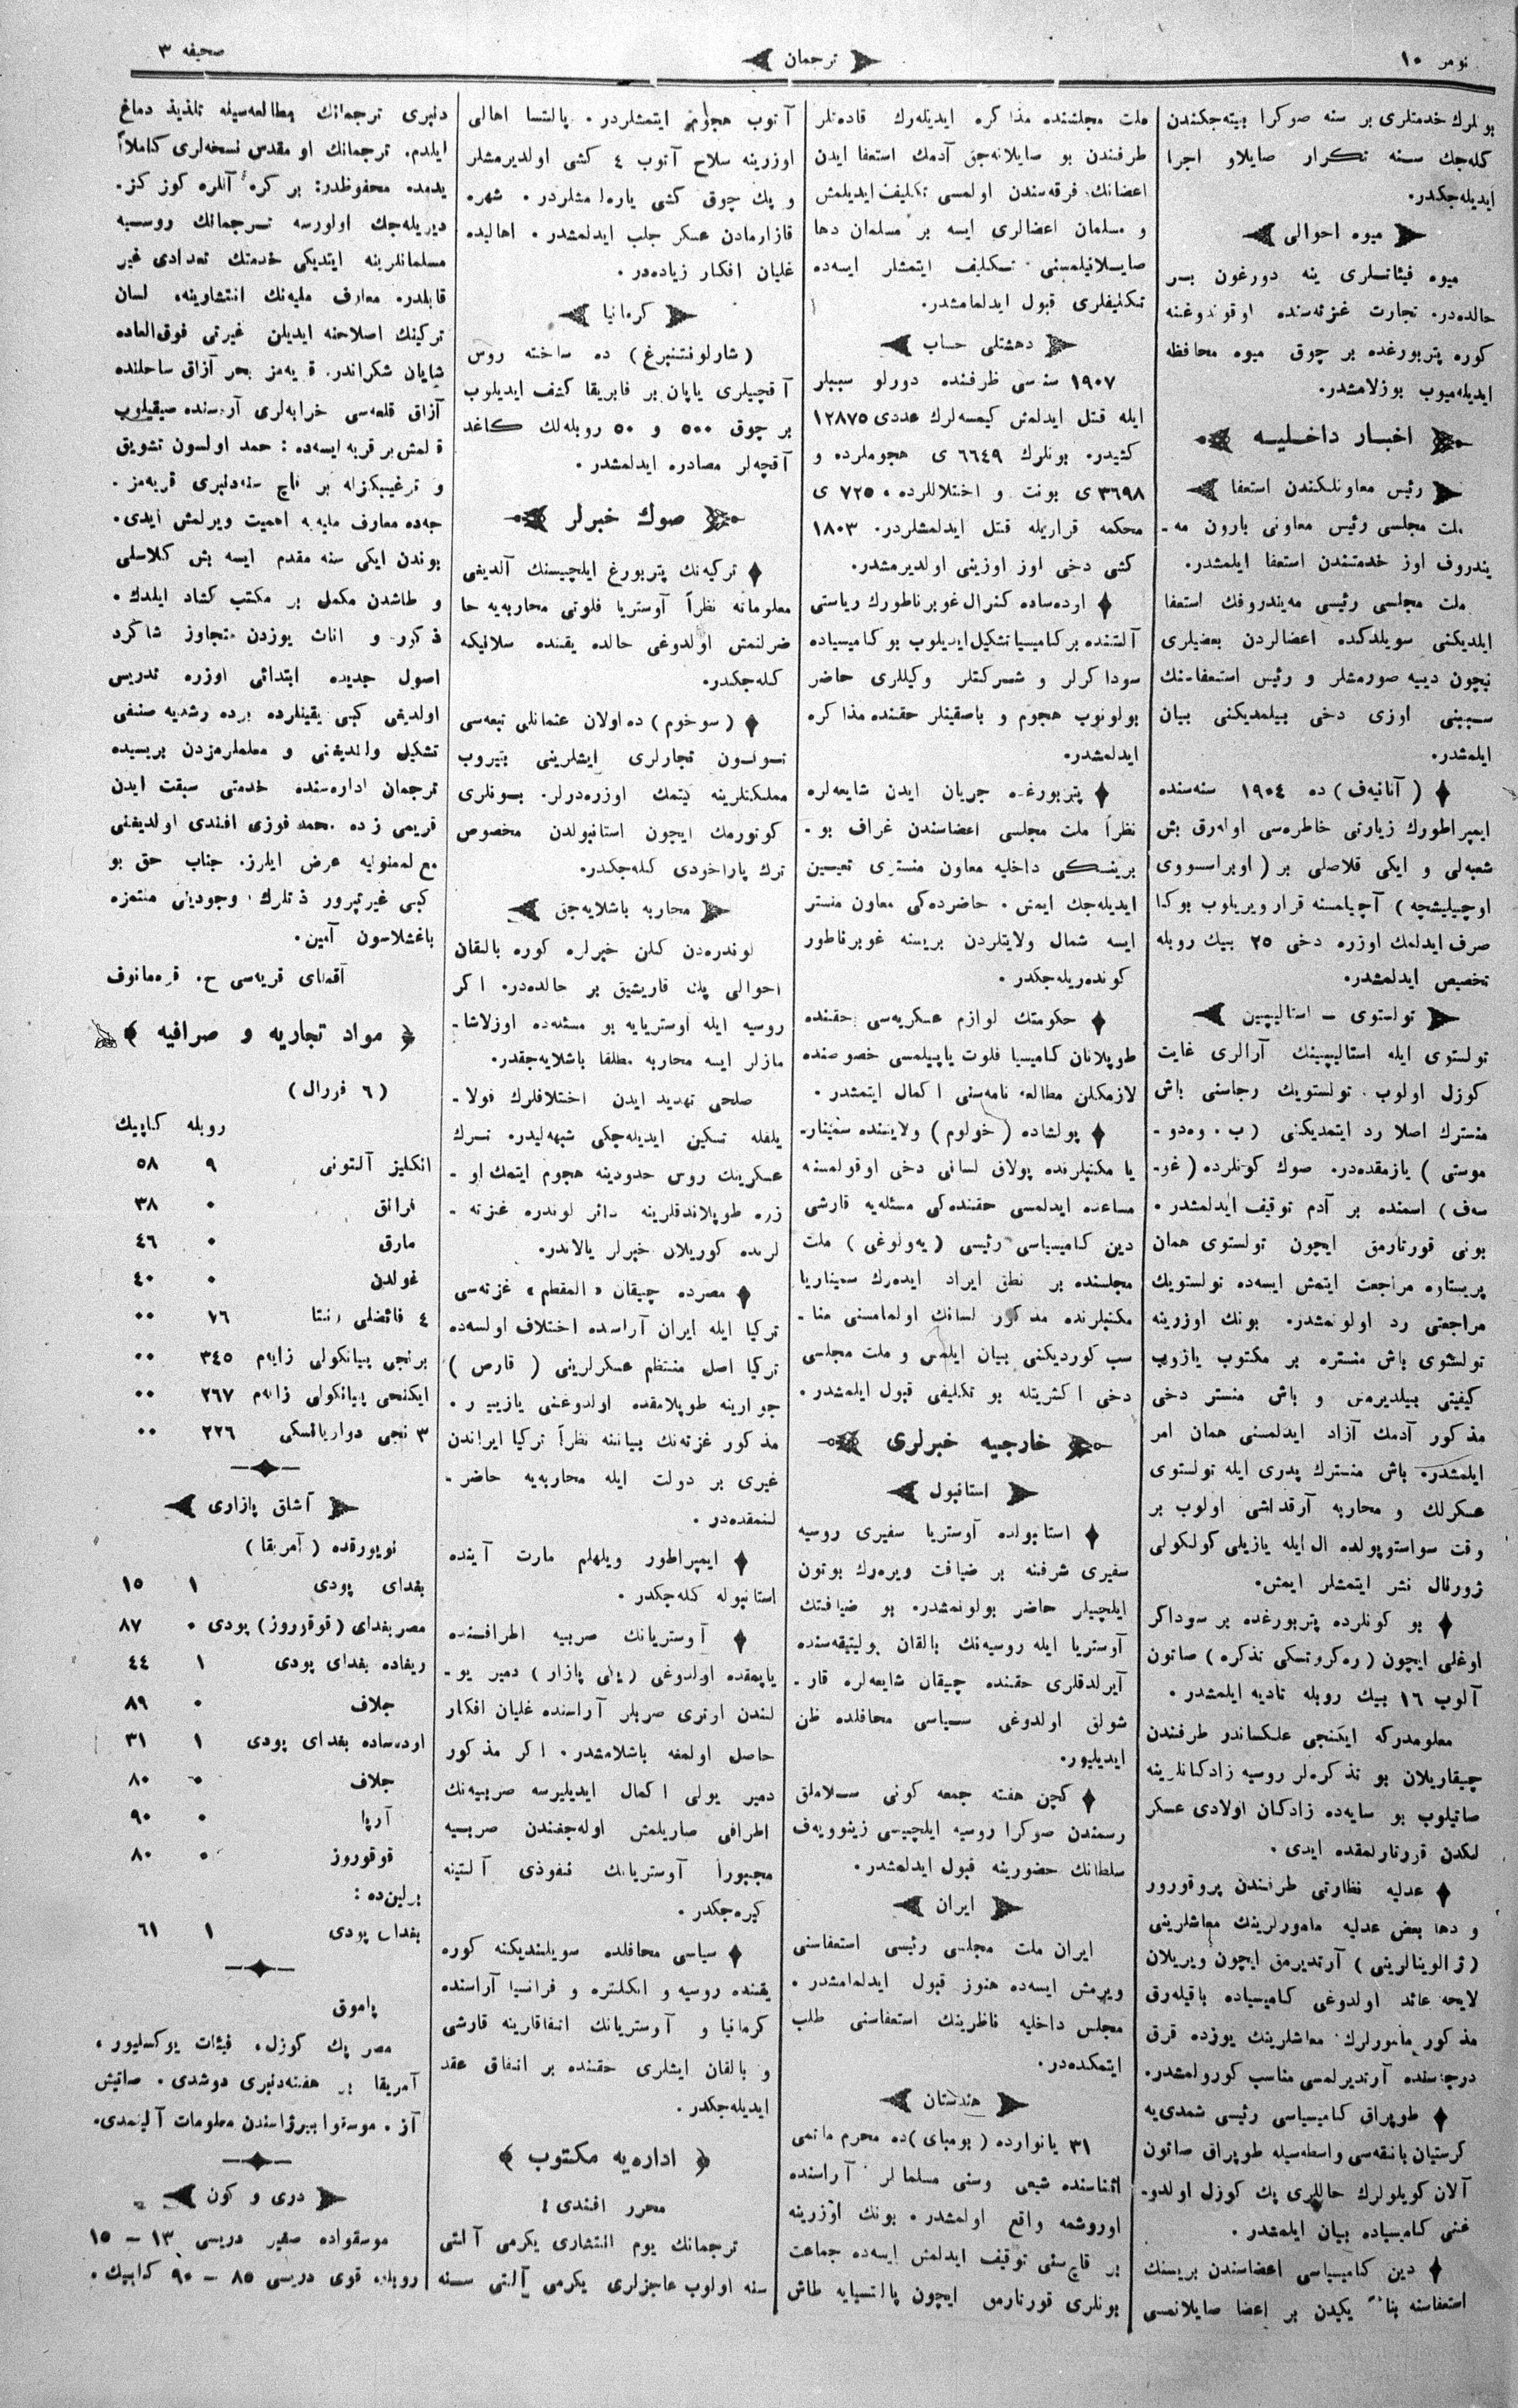 نومر ١٠
ترجمان
صحيفه ٣
بونلرك خدمتلری بر سنه صوكرا بيته‌جكندن
كله‌جك سنه تكرار صايلاو اجرا
ايديله‌جكدر.
ميوه احوالی
ميوه فيئاتلری ينه دورغون بر
حالده‌در. تجارت غزته‌سنده اوقوندوغنه
كوره پتربورغده بر چوق ميوه محافظه
ايديله‌ميوب بوزلامشدر.
اخبار داخليه
رئيس معاونلكندن استعفا
ملت مجلسی رئيس معاونی بارون مه‌ـ
يندروف اوز خدمتندن استعفا ايلمشدر.
ملت مجلسی رئيسی مه‌يندروفك استعفا
ايلديكنی سويلدكده اعضالردن بعضيلری
نيچون دييه صورمشلر و رئيس استعفاسنك
سببنی اوزی دخی بيلمديكنی بيان
ايلمشدر.
(آنانيه‌ف) ده ١٩٠٤ سنه‌سنده
ايمپراطورك زيارتی خاطره‌سی اوله‌رق بش
شعبه‌لی و ايكی قلاصلی بر (اوبراسووی
اوچيليشچه) آچيلمسنه قرار ويريلوب بوكا
صرف ايدلمك اوزره دخی ٢٥ بيك روبله
تخصيص ايدلمشدر.
تولستوی ـ استاليپين
تولستوی ايله استاليپينك آرالری غايت
كوزل اولوب تولستويك رجاسنی باش
منسترك اصلا رد ايتمديكنی (ب. وه‌دو ـ
موستی) يازمقده‌در. صوك كونلرده (غوـ
سه‌ف) اسمنده بر آدم توقيف ايدلمشدر.
بونی قورتارمق ايچون تولستوی همان
پريستاوه مراجعت ايتمش ايسه‌ده تولستويك
مراجعتی رد اولونمشدر. بونك اوزرينه
تولستوی باش منستره بر مكتوب يازوب
كيفيتی بيلديرمش و باش منستر دخی
مذكور آدمك آزاد ايدلمسنی همان امر
ايلمشدر. باش منسترك پدری ايله تولستوی
عسكرلك و محاربه آرقداشی اولوب بر
وقت سواستوپولده ال ايله يازيلی كولكولی
ژورنال نشر ايتمشلر ايمش.
بو كونلرده پتربورغده بر سوداكر
اوغلی ايچون (ره‌كروتسكی تذكره) صاتون
آلوب ١٦ بيك روبله تاديه ايلمشدر.
معلومدركه ايكنجی علكساندر طرفندن
چيقاريلان بو تذكره‌لر روسيه زادكانلرينه
صاتيلوب بو سايه‌ده زادكان اولادی عسكر
لكدن قورتارلمقده ايدی.
عدليه نظارتی طرفندن پروقورور
و دها بعض عدليه مامورلرينك معاشلرينی
(ژالوينالرينی) آرتديرمق ايچون ويريلان
لايحه عائد اولدوغی كاميسياده باقيله‌رق
مذكور مامورلرك معاشلرينك يوزده قرق
درجه‌سنده آرتديرلمسی مناسب كورولمشدر.
طوپراق كاميسياسی رئيسی شمدی‌يه
كرستيان بانقه‌سی واسطه‌سيله طوپراق صاتون
آلان كويلولرك حاللری پك كوزل اولدوـ
غنی كاميسياده بيان ايلمشدر.
دين كاميسياسی اعضاسندن بريسنك
استعفاسنه بناءً يكيدن بر اعضا صايلانمسی
ملت مجلسنده مذاكره ايديله‌رك قاده‌تلر
طرفندن بو صايلانه‌جق آدمك استعفا ايدن
اعضانك فرقه‌سندن اولمسی تكليف ايديلمش
و مسلمان اعضالری ايسه بر مسلمان دها
صايلانيلمسنی تكليف ايتمشلر ايسه‌ده
تكليفلری قبول ايدلمامشدر.
دهشتلی حساب
١٩٠٧ سنه‌سی ظرفنده دورلو سببلر
ايله قتل ايدلمش كيمسه‌لرك عددی ١٢٨٧٥
كشيدر. بونلرك ٦٦٤٩ ی هجوملرده و
٣٦٩٨ ی بونت و اختلاللرده، ٧٢٥ ی
محكمه قراريله قتل ايدلمشلردر. ١٨٠٣
كشی دخی اوز اوزينی اولديرمشدر.
اوده‌ساده كنرال غوبرناطورك رياستی
آلتنده بر كاميسيا تشكيل ايديلوب بو كاميسياده
سوداكرلر و شركتلر وكيللری حاضر
بولونوب هجوم و باصقينلر حقنده مذاكره
ايدلمشدر.
پتربورغده جريان ايدن شايعه‌لره
نظراً ملت مجلسی اعضاسندن غراف بو ـ
برينسكی داخليه معاون منستری تعيين
ايديله‌جك ايمش. حاضرده‌كی معاون منستر
ايسه شمال ولايتلردن بريسنه غوبرناطور
كوندريله‌جكدر.
حكومتك لوازم عسكريه‌سی حقنده
طوپلانان كاميسيا فلوت ياپيلمسی خصوصنده
لازمكلن مطالعه نامه‌سنی اكمال ايتمشدر.
پولشاده (خولوم) ولايتنده سمينارـ
يا مكتبلرنده پولاق لسانی دخی اوقولمسنه
مساعده ايدلمسی حقنده‌كی مسئله‌يه قارشی
دين كاميسياسی رئيسی (يه‌ولوغی) ملت
مجلسنده بر نطق ايراد ايده‌رك سميناريا
مكتبلرنده مذكور لسانك اولمامسنی مناـ
سب كورديكنی بيان ايلمش و ملت مجلسی
دخی اكثريتله بو تكليفی قبول ايلمشدر.
خارجيه خبرلری
استانبول
استانبولده آوستريا سفيری روسيه
سفيری شرفنه بر ضيافت ويره‌رك بوتون
ايلچيلر حاضر بولونمشدر. بو ضيافتك
آوستريا ايله روسيه‌نك بالقان پوليتيقه‌سنده
آيرلدقلری حقنده چيقان شايعه‌لره قارـ
شولق اولدوغی سياسی محافلده ظن
ايديليور.
كچن هفته جمعه كونی سلاملق
رسمندن صوكرا روسيه ايلچيسی زينوويه‌ف
سلطانك حضورينه قبول ايدلمشدر.
ايران
ايران ملت مجلسی رئيسی استعفاسنی
ويرمش ايسه‌ده هنوز قبول ايدلمامشدر.
مجلس داخليه ناظرينك استعفاسنی طلب
ايتمكده‌در.
هندستان
٣١ يانوارده (بومبای) ده محرم ماتمی
اثناسنده شيعی وسنی مسلمانلر آراسنده
اوروشمه واقع اولمشدر. بونك اوزرينه
بر قاچسنی توقيف ايدلمش ايسه‌ده جماعت
بونلری قورتارمق ايچون پالتسيايه طاش
آتوب هجوم ايتمشلردر. پالتسا اهالی
اوزرينه سلاح آتوب ٤ كشی اولديرمشلر
و پك چوق كشی ياره‌لمشلردر. شهره
قازارمادن عسكر جلب ايدلمشدر. اهاليده
غليان افكار زياده‌در.
كرمانيا
(شارلوتتنبرغ) ده ساخته روس
آقچيلری ياپان بر فابريقا كشف ايديلوب
بر چوق ٥٠٠ و ٥٠ روبله‌لك كاغد
آقچه‌لر مصادره ايدلمشدر.
صوك خبرلر
تركيه‌نك پتربورغ ايلچيسنك آلديغی
معلوماته نظراً آوستريا فلوتی محاربه‌يه حا
ضرلنمش اولدوغی حالده يقينده سلانيكه
كله‌جكدر.
(سوخوم) ده اولان عثمانلی تبعه‌سی
توتون تجارلری ايشلرينی بتيروب
مملكتلرينه كيتمك اوزره‌درلر. بونلری
كوتورمك ايچون استانبولدن مخصوص
ترك پاراخودی كله‌جكدر.
محاربه باشلايه‌جق
لوندره‌دن كلن خبرلره كوره بالقان
احوالی پك قاريشيق بر حالده‌در. اكر
روسيه ايله اوستريايه بو مسئله‌ده اوزلاشاـ
مازلر ايسه محاربه مطلقا باشلايه‌جقدر.
صلحی تهديد ايدن اختلافلرك قولاـ
يلقله تسكين ايديله‌جكی شبهه‌ليدر. ترك
عسكرينك روس حدودينه هجوم ايتمك او ـ
زره طوپلاندقلرينه دائر لوندره غزته ـ
لرنده كوريلان خبرلر يالاندر.
مصرده چيقان «المقطم» غزته‌سی
تركيا ايله ايران آراسده اختلاف اولسه‌ده
تركيا اصل منتظم عسكرلرينی (قارص)
جوارينه طوپلامقده اولدوغنی يازييور.
مذكور غزته‌نك بياننه نظراً تركيا ايراندن
غيری بر دولت ايله محاربه‌يه حاضر ـ
لنمقده‌در.
ايمپراطور ويلهلم مارت آينده
استانبوله كله‌جكدر.
آوستريانك صربيه اطرافنده
ياپمقده اولدوغی (يالی پازار) دمير يو ـ
لندن ارتری صربلر آراسنده غليان افكار
حاصل اولمغه باشلامشدر. اكر مذكور
دمير يولی اكمال ايديليرسه صربيه‌نك
اطرافی صاريلمش اوله‌جغندن صربيه
مجبوراً آوستريانك نفوذی آلتينه
كيره‌جكدر.
سياسی محافلده سويلنديكنه كوره
يقنده روسيه و انكلتره و فرانسيا آراسنده
كرمانيا و آوستريانك اتفاقارينه قارشی
و بالقان ايشلری حقنده بر اتفاق عقد
ايديله‌جكدر.
اداره‌يه مكتوب
محرر افندی!
ترجمانك يوم انتشاری يكرمی آلتی
سنه اولوب عاجزلری يكرمی آلتی سنه
دنبری ترجمانك مطالعه‌سيله تلذيذ دماغ
ايلدم. ترجمانك او مقدس نسخه‌لری كاملاً
يدمده محفوظدر: بر كره آنلره كوز كز.
ديريله‌جك اولورسه ترجمانك روسيه
مسلمانلرينه ايتديكی خدمتك تعدادی غير
قابلدر. معارف مليه‌نك انتشارينه، لسان
تركينك اصلاحنه ايديلن غيرتی فوق‌العاده
شايان شكراندر. قريه‌مز بحر آزاق ساحلنده
آزاق قلعه‌سی خرابه‌لری آره‌سنده صيقيلوب
قالمش بر قريه ايسه‌ده: حمد اولسون تشويق
و ترغيبكزله بر قاچ سنه‌دنبری قريه‌مز ـ
جه‌ده معارف مليه‌يه اهميت ويرلمش ايدی.
بوندن ايكی سنه مقدم ايسه بش كلاسلی
و طاشدن مكمل بر مكتب كشاد ايلدك.
ذكور و اناث يوزدن متجاوز شاكرد
اصول جديده ابتدائی اوزره تدريس
اولديغی كبی يقينلرده برده رشديه صنفی
تشكيل والنديغنی و معلملرمزدن بريسيده
ترجمان اداره‌سنده خدمتی سبقت ايدن
قريمی زده محمد فوزی افندی اولديغنی
مع الممنونيه عرض ايلرز. جناب حق بو
كبی غيرتپرور ذاتلرك وجودينی ملتمزه
باغشلاسون آمين.
آقصای قريه‌سی ح. قره‌مانوف
مواد تجاريه و صرافيه
(٦ فورال)
روبله كاپيك
انكليز آلتونی ٩ ٥٨
فرانق ٠ ٣٨
مارق ٠ ٤٦
غولدن ٠ ٤٠
٤ فائضلی رنتا ٧٦ ٠٠
برنجی بيانكولی زايم ٣٤٥ ٠٠
ايكنجی پيانكولی زايم ٢٦٧ ٠٠
٣ نجی دوارياتسكی ٢٢٦ ٠٠
آشلق پازاری
نويورقده (آمريقا)
بغدای پودی ١ ١٥
مصر بغدای (قوقوروز) پودی ٠ ٨٧
ريغاده بغدای پودی ١ ٤٤
چلاف ٠ ٨٩
اوده‌ساده بغدای پودی ١ ٣١
چلاف ٠ ٨٠
آرپا ٠ ٩٠
قوقوروز ٠ ٨٠
برلين‌ده:
بغدای پودی ١ ٦١
پاموق
مصر پك كوزل، فيئات يوكسليور،
آمريقا بر هفته‌دنبری دوشدی. صاتيش
آز. موسقوا بيرژاسندن معلومات آلينمدی.
دری و كون
موسقواده صغير دريسی ١٣ ـ ١٥
روبله، قوی دريسی ٨٥ ـ ٩٠ كاپيك.